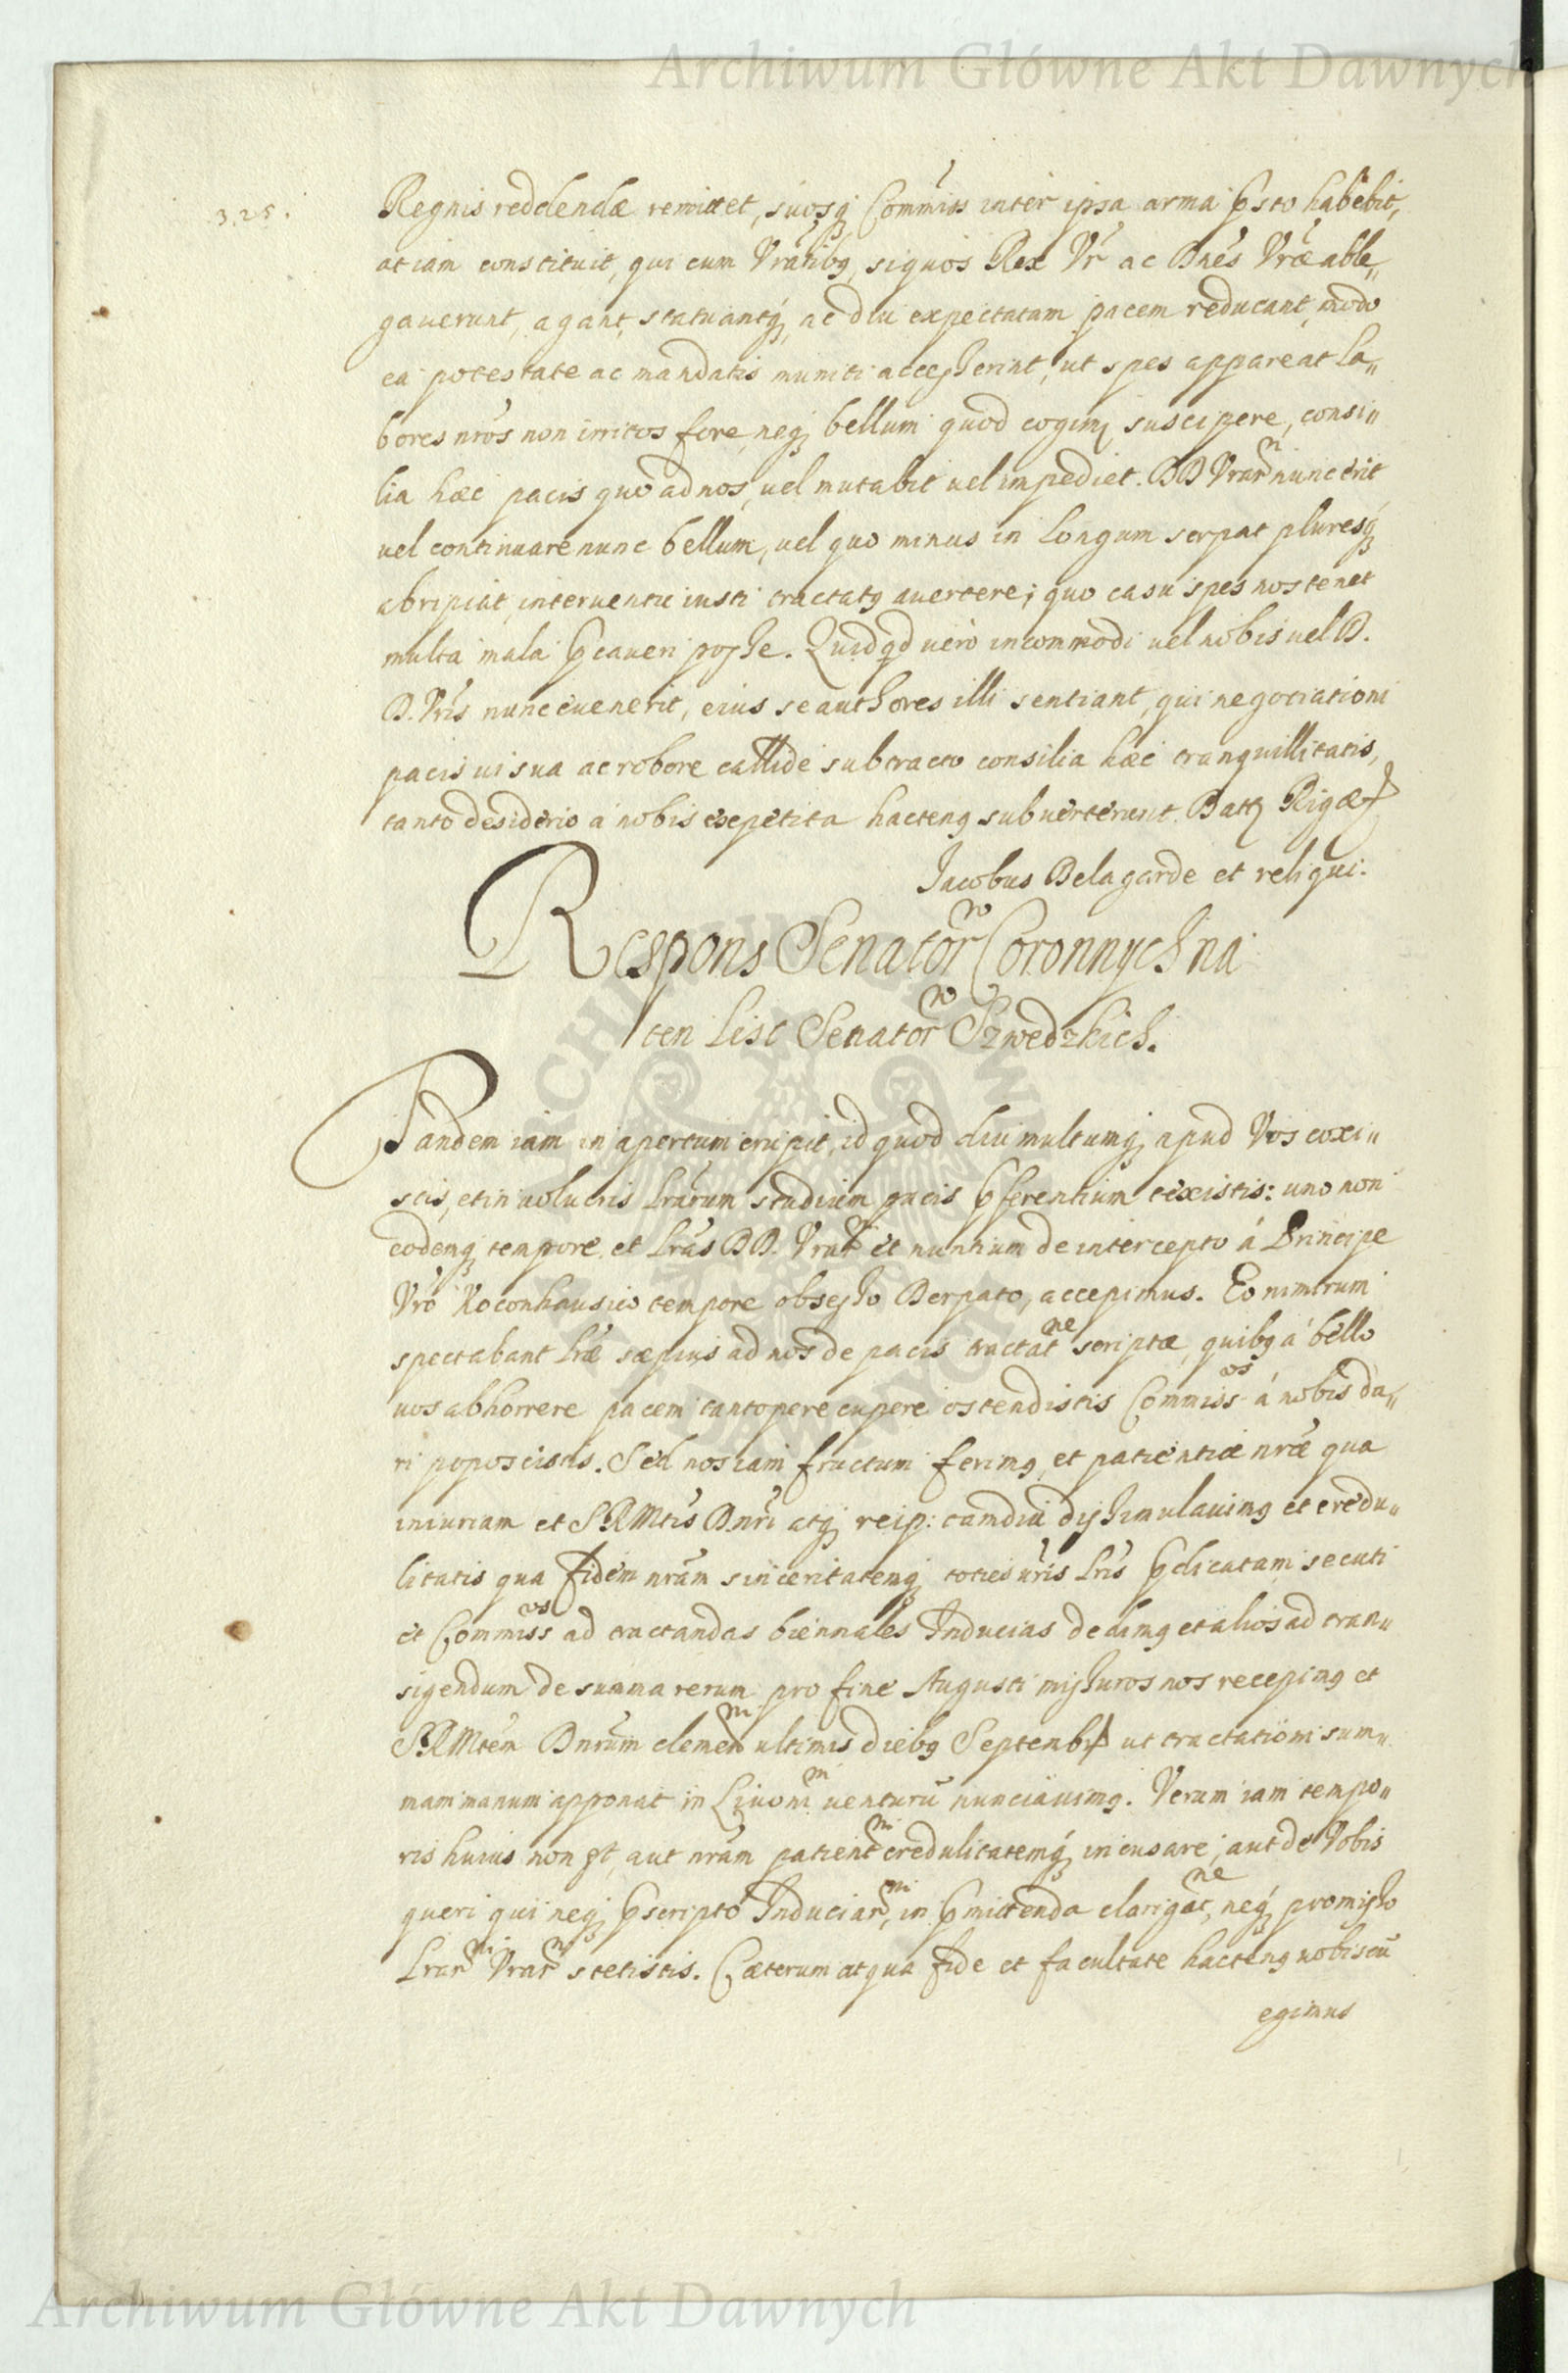 Archiwum Główne Akt Dawnych
325.
Regnis reddendæ remittet, suosq́ Commiss inter ipsa arma p̃sto habebit,
ac iam constituit, qui cum Vrãtibꝯ, siquos Rex Vr̃ ac Dnẽs Vrãe able„
gauerunt, agant, statuantq́, ac diu expectatam pacem reducant, modo
ea potestate ac mandatis muniti accesserint, ut spes appareat La„
bores nrõs non irritos fore, neq́ bellum quod cogimꝯ suscipere, consi„
lia hæc pacis quo ad nos, uel mutabit uel impediet. DD Vrarm nunc erit
uel continuare nunc bellum, uel quo minus in longum serpat pluresq́
abripiat, interuentu iusti tractatꝯ auertere; quo casu spes nos tenet
multa mala p̃caueri posse. Quidqd uero incommodi uel nobis uel D.
D. Vrĩs nunc euenerit, eius se authores illi sentiant, qui negotiationi
pacis ui sua ac robore callide subtracto consilia hæc tranquillitatis,
tanto desiderio a nobis expetita hactenꝯ subuerterunt. Datꝫ Rigæ
Jacobus Delagarde et reliqui.
Respons Senatorw Coronnych na
ten List Senatorw Szwedzkich.
Tandem iam in apertum erupit, id quod diu multumq́ apud Vos coxi„
stis, et inuolucris Lrãrum studium pacis p̃ferentium texistis: uno non
eodemq́ tempore, et Lrãs DD. Vrarm et nuntium de intercepto á Principe
Vrõ Koconhausio tempore obsesso Derpato, accepimus. Eo nimirum
spectabant Lrãe sæpius ad nos de pacis tractatne scriptæ, quibꝯ á bello
uos abhorrere pacem tantopere cupere ostendistis Commissos á nobis da„
ri poposcistis. Sed nos iam fructum ferimꝯ et patientiæ nrãe qua
iniuriam et SRMtis Dnrĩ atq́ reip: tamdiu dissimulauimꝯ et credu„
litatis qua fidem nrãm sinceritatemq́ toties urĩs Lrĩs p̃dicatam secuti
et Commissos ad tractandas biennales Inducias dedimꝯ et alios ad tran„
sigendum de summa rerum pro fine Augusti missuros nos recepimꝯ et
SRMtem Dnrũm clemenm ultimis diebꝯ Septembꝶ ut tractationi sum„
mam manum apponat in Livonim uenturũ nunciauimꝯ. Verum iam tempo„
ris huius non est, aut nrãm patientm credulitatemq́ incusare, aut de Vobis
queri qui neq́ p̃scripto Induciarm, in p̃mittenda clarigatne, neq́ promisso
Lrarm Vrarm stetistis. Cæterum at qua fide et facultate hactenꝯ nobiscũ
egimus
Archiwum Główne Akt Dawnych